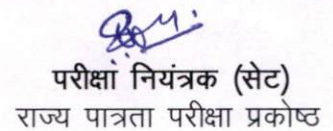 परीक्षा नियंत्रक (सेट)
राज्य पात्रता परीक्षा प्रकोष्ठ